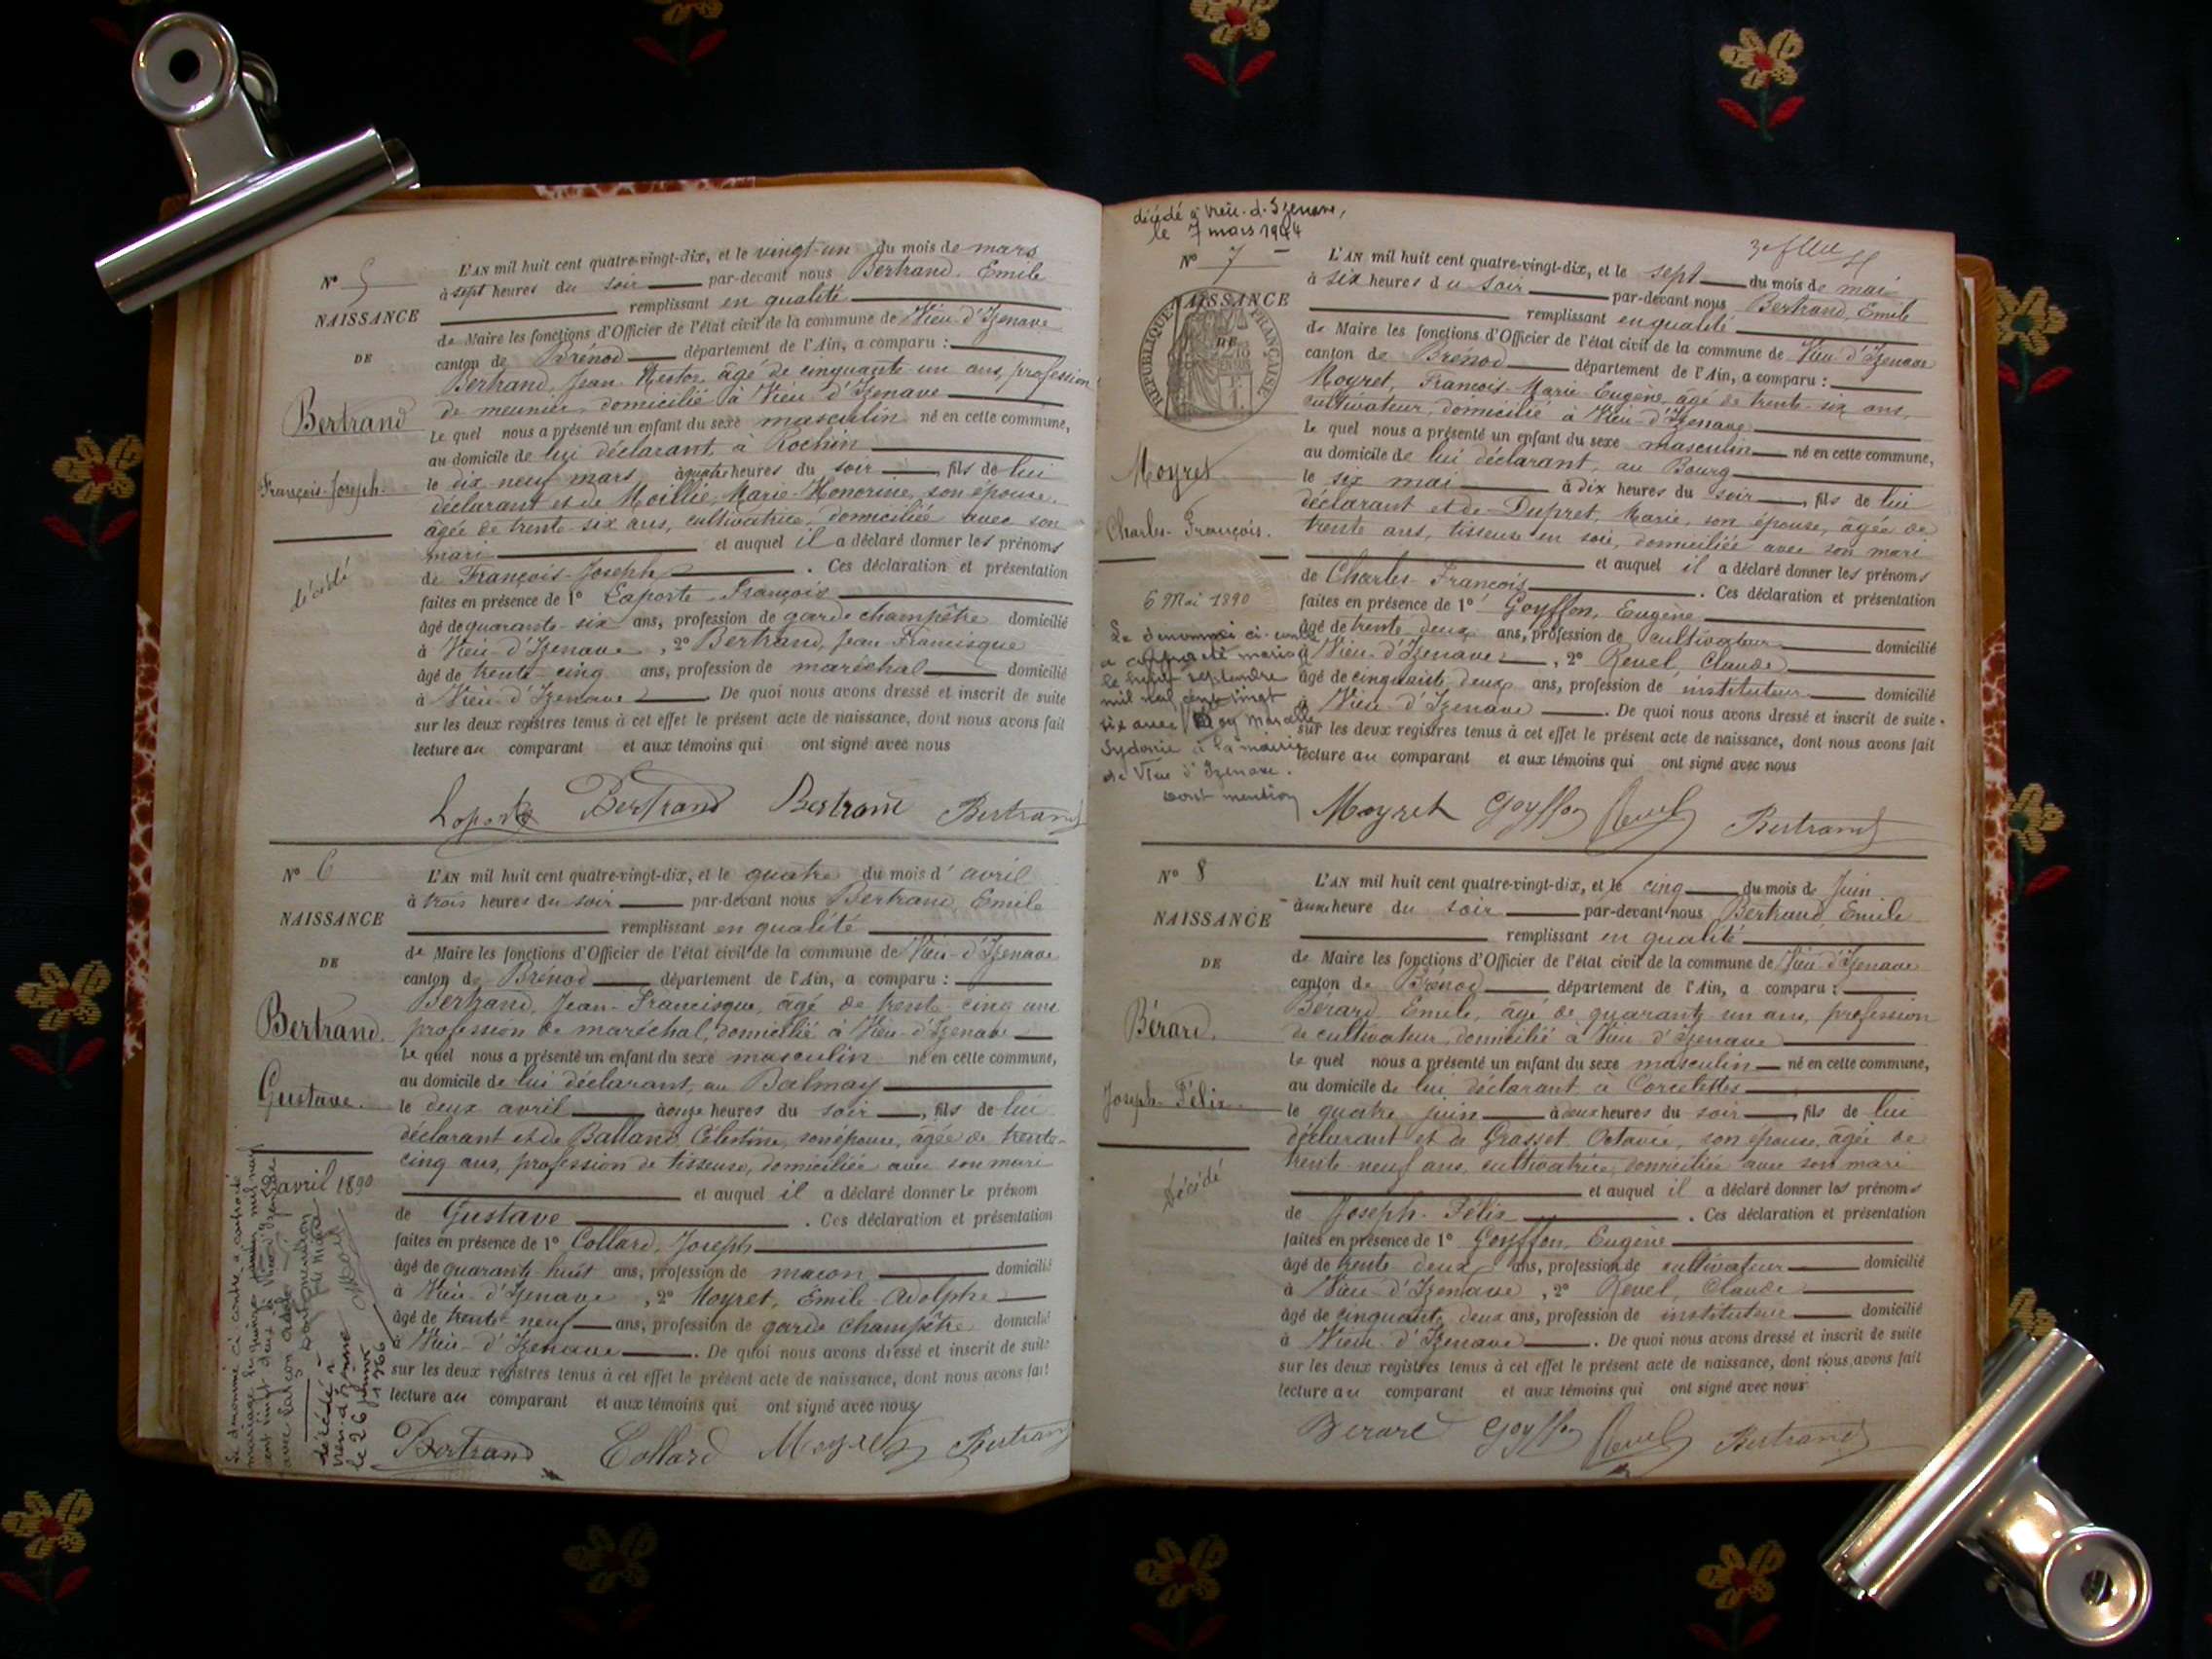 N° 5
NAISSANCE
DE
Bertrand
François-Joseph
décédé
L'AN mil huit cent quatre-vingt-dix, et le vingt-un du mois de mars
à sept heures du soir par-devant nous Bertrand, Emile
remplissant en qualité
de Maire les fonctions d'Officier de l'état civil de la commune de Vieu-d'Izenave
canton de Brénod département de l'Ain, a comparu :
Bertrand, Jean Nestor, âgé de cinquante un ans, profession
de meunier, domicilié à Vieu d'Izenave
Le quel nous a présenté un enfant du sexe masculin né en cette commune,
au domicile de lui déclarant, à Rochin
le dix neuf mars à quatre heures du soir, fils de lui
déclarant et de Moillie, Marie-Honorine, son épouse,
âgée de trente-six ans, cultivatrice, domiciliée avec son
mari et auquel il a déclaré donner les prénoms
de François-Joseph. Ces déclaration et présentation
faites en présence de 1° Laporte, François
âgé de quarante-six ans, profession de garde champêtre domicilié
à Vieu-d'Izenave, 2° Bertrand, Jean Francisque
âgé de trente-cinq ans, profession de maréchal domicilié
à Vieu-d'Izenave. De quoi nous avons dressé et inscrit de suite
sur les deux registres tenus à cet effet le présent acte de naissance, dont nous avons fait
lecture au comparant et aux témoins qui ont signé avec nous
Laporte Bertrand Bertrand Bertrand
N° 6
NAISSANCE
DE
Bertrand.
Gustave.
2 avril 1890
Le dénommé ci contre a contracté
mariage le quinze mil neuf
cent vingt deux à Vieu d'Izenave
avec
Dont mention
le Maire
décédé à
Vieu-d'Izenave
le 26 janvier
1966
L'AN mil huit cent quatre-vingt-dix, et le quatre du mois d'avril
à trois heures du soir par-devant nous Bertrand, Emile
remplissant en qualité
de Maire les fonctions d'Officier de l'état civil de la commune de Vieu-d'Izenave
canton de Brénod département de l'Ain, a comparu :
Bertrand, Jean-Francisque, âgé de trente-cinq ans
profession de maréchal, domicilié à Vieu-d'Izenave
Le quel nous a présenté un enfant du sexe masculin né en cette commune,
au domicile de lui déclarant, au Balmay
le deux avril à onze heures du soir, fils de lui
déclarant et de Balland, Célestine, son épouse, âgée de trente-
cinq ans, profession de tisseuse, domiciliée avec son mari
et auquel il a déclaré donner le prénom
de Gustave. Ces déclaration et présentation
faites en présence de 1° Collard, Joseph
âgé de quarante huit ans, profession de maçon domicilié
à Vieu-d'Izenave, 2° Moyret, Émile-Adolphe
âgé de trente-neuf ans, profession de garde champêtre domicilié
à Vieu-d'Izenave. De quoi nous avons dressé et inscrit de suite
sur les deux registres tenus à cet effet le présent acte de naissance, dont nous avons fait
lecture au comparant et aux témoins qui ont signé avec nous
Bertrand Collard Moyret Bertrand
décédé à Vieu-d'Izenave,
le 7 mars 1944
N° 7
NAISSANCE
DE
RÉPUBLIQUE FRANÇAISE
Moyret
Charles-François.
6 Mai 1890
Le dénommé ci-contre
a contracté mariage
le septembre
mil neuf cent vingt
six avec
Sydonie à la mairie
de Vieu d'Izenave.
Dont mention
L'AN mil huit cent quatre-vingt-dix, et le sept du mois de mai
à six heures du soir par-devant nous Bertrand, Emile
remplissant en qualité
de Maire les fonctions d'Officier de l'état civil de la commune de Vieu-d'Izenave
canton de Brénod département de l'Ain, a comparu :
Moyret, François-Marie Eugène, âgé de trente-six ans,
cultivateur, domicilié à Vieu-d'Izenave
Le quel nous a présenté un enfant du sexe masculin né en cette commune,
au domicile de lui déclarant, au Bourg
le six mai à dix heures du soir, fils de lui
déclarant et de Dupret, Marie, son épouse, âgée de
trente ans, tisseuse en soie, domiciliée avec son mari
et auquel il a déclaré donner les prénoms
de Charles-François. Ces déclaration et présentation
faites en présence de 1° Goyffon, Eugène
âgé de trente-deux ans, profession de cultivateur domicilié
à Vieu-d'Izenave, 2° Revel, Claude
âgé de cinquante deux ans, profession de instituteur domicilié
à Vieu-d'Izenave. De quoi nous avons dressé et inscrit de suite
sur les deux registres tenus à cet effet le présent acte de naissance, dont nous avons fait
lecture au comparant et aux témoins qui ont signé avec nous
Moyret Goyffon Revel Bertrand
N° 8
NAISSANCE
DE
Bérard.
Joseph-Félix
Décédé
L'AN mil huit cent quatre-vingt-dix, et le cinq du mois de juin
à une heure du soir par-devant nous Bertrand, Emile
remplissant en qualité
de Maire les fonctions d'Officier de l'état civil de la commune de Vieu-d'Izenave
canton de Brénod département de l'Ain, a comparu :
Bérard, Emile, âgé de quarante un ans, profession
de cultivateur, domicilié à Vieu d'Izenave
Le quel nous a présenté un enfant du sexe masculin né en cette commune,
au domicile de lui déclarant à Corcelettes
le quatre juin à deux heures du soir, fils de lui
déclarant et de Grasset, Octavie, son épouse, âgée de
trente neuf ans, cultivatrice, domiciliée avec son mari
et auquel il a déclaré donner les prénoms
de Joseph-Félix. Ces déclaration et présentation
faites en présence de 1° Goyffon, Eugène
âgé de trente deux ans, profession de cultivateur domicilié
à Vieu-d'Izenave, 2° Revel, Claude
âgé de cinquante deux ans, profession de instituteur domicilié
à Vieu-d'Izenave. De quoi nous avons dressé et inscrit de suite
sur les deux registres tenus à cet effet le présent acte de naissance, dont nous avons fait
lecture au comparant et aux témoins qui ont signé avec nous
Berard Goyffon Revel Bertrand